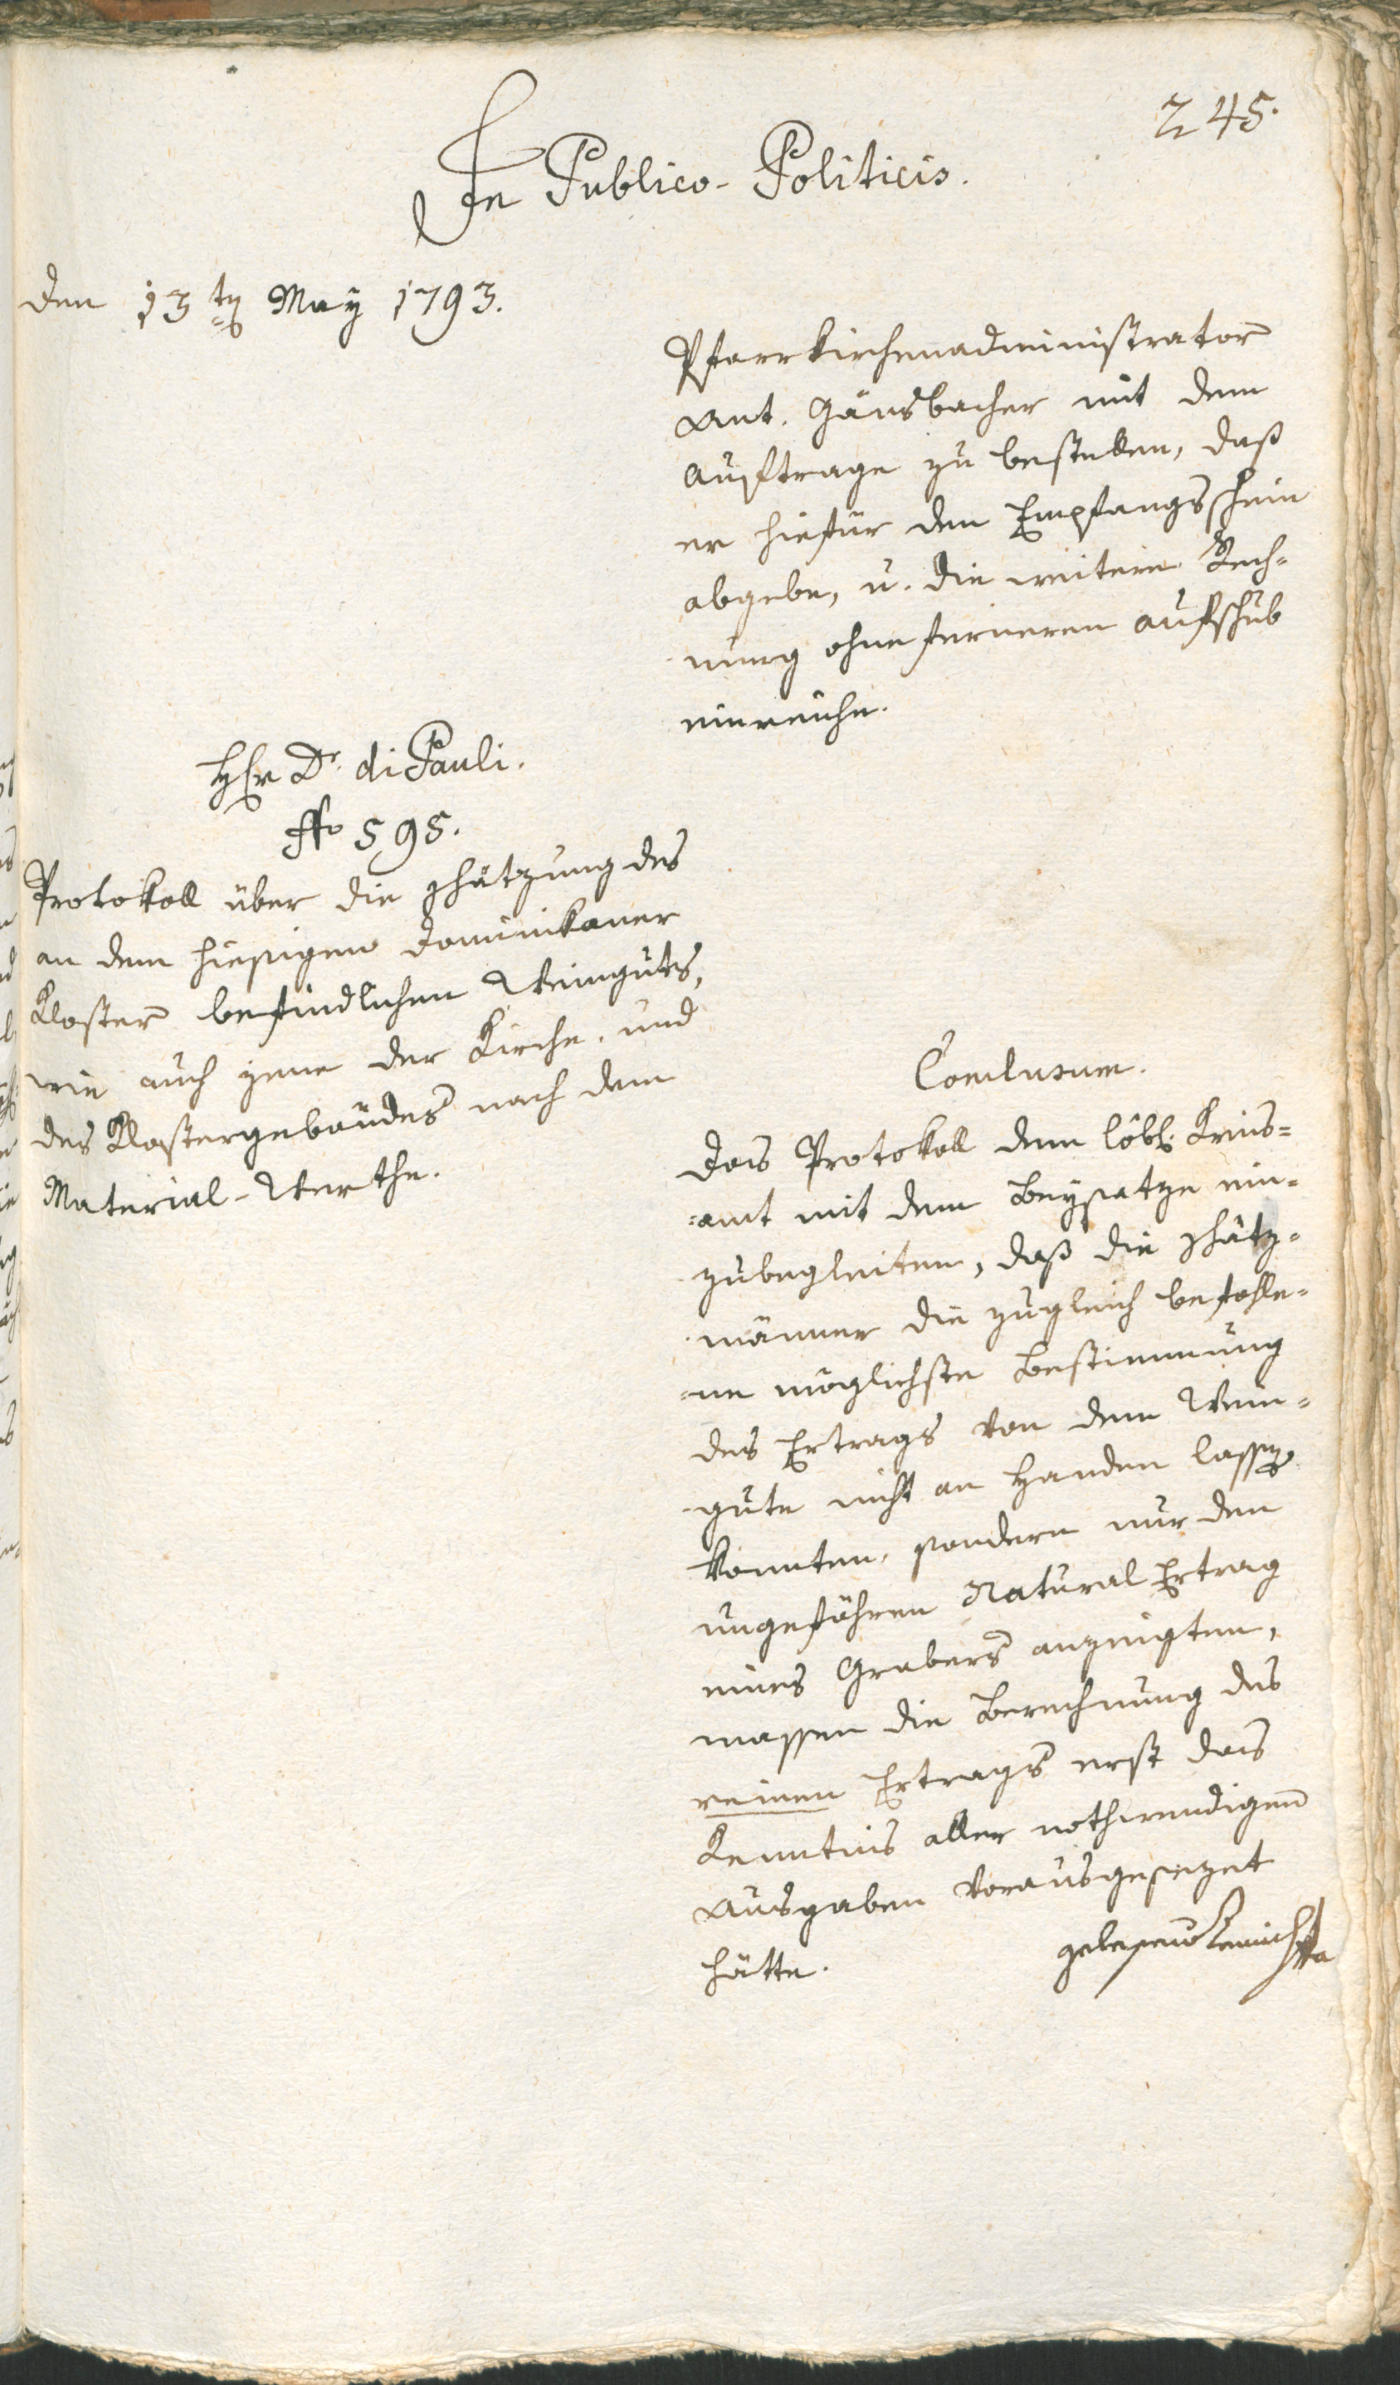 245.
In Publico-Politicis.
den 13ten May 1793.
Pfarrkirchenadministrator
Ant. Gänsbacher mit dem
Auftrage zu bestellen, daß
er hiefür den Empfangsschein
abgebe, u. die weitere Rech-
nung ohne ferneren Aufschub
einreiche.
Hr Dr. di Pauli.
No 595.
Protokoll über die Schätzung des
an dem hiesigen Dominikaner
Kloster befindlichen Weinguts,
wie auch jene der Kirche, und
des Klostergebäudes nach dem
Material-Werthe.
Conclusum.
Das Protokoll dem löbl. Kreis-
=amt mit dem Beysatze ein-
zubegleiten, daß die Schätz-
männer die zugleich befohle-
ne möglichste Bestimmung
des Ertrags von dem Wein-
gute nicht an Handen lassen
konnten, sondern nur den
ungefähren Natural Ertrag
eines Grabers anzeigten,
massen die Berechnung des
reinen Ertrags erst das
Kenntnis aller nothwendigen
Ausgaben vorausgesezet
hätte.
gelesen